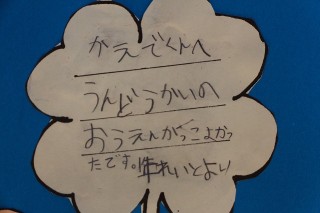 かえでくんへ
うんどうかいの
おうえんがっこよかっ
たです。れいとより